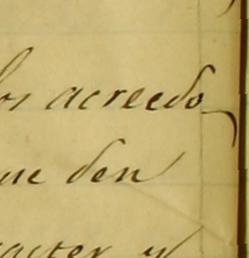 los acreedo
ue den
racter y